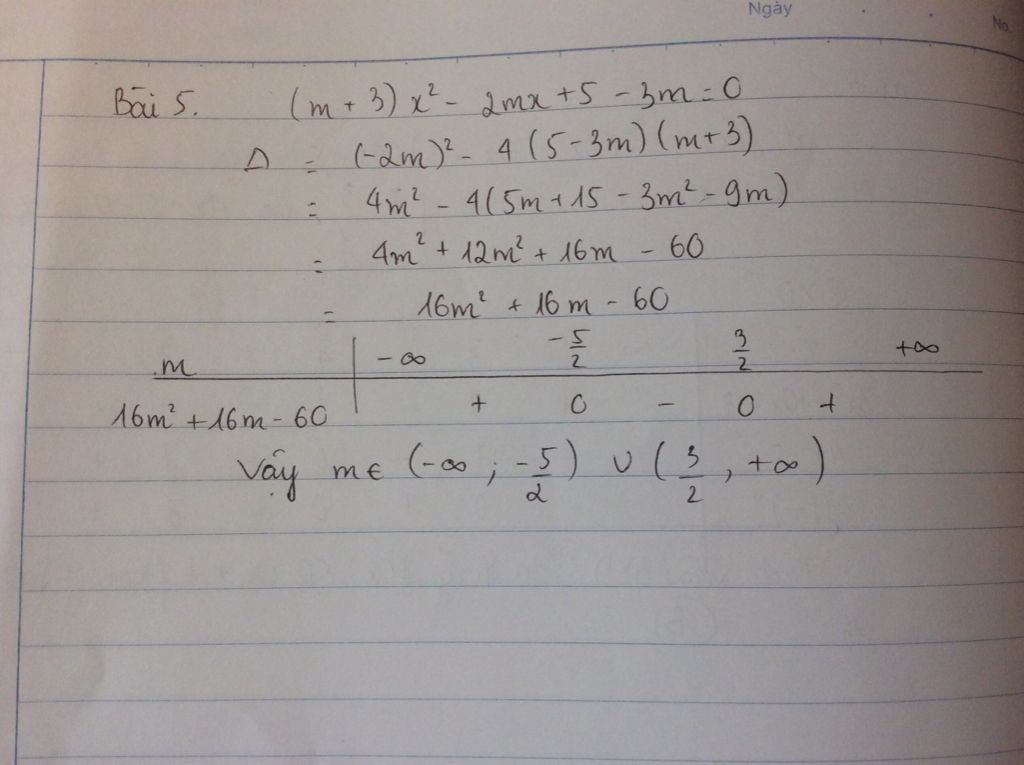 Ngày
No.
Bài 5. (m + 3) x² - 2mx + 5 - 3m = 0
Δ = (-2m)² - 4 (5 - 3m) (m + 3)
= 4m² - 4(5m + 15 - 3m² - 9m)
= 4m² + 12m² + 16m - 60
= 16m² + 16m - 60
m | -∞ -5/2 3/2 +∞
16m² + 16m - 60 | + 0 - 0 +
Vậy m ∈ (-∞ ; -5/2) ∪ (3/2 , +∞)